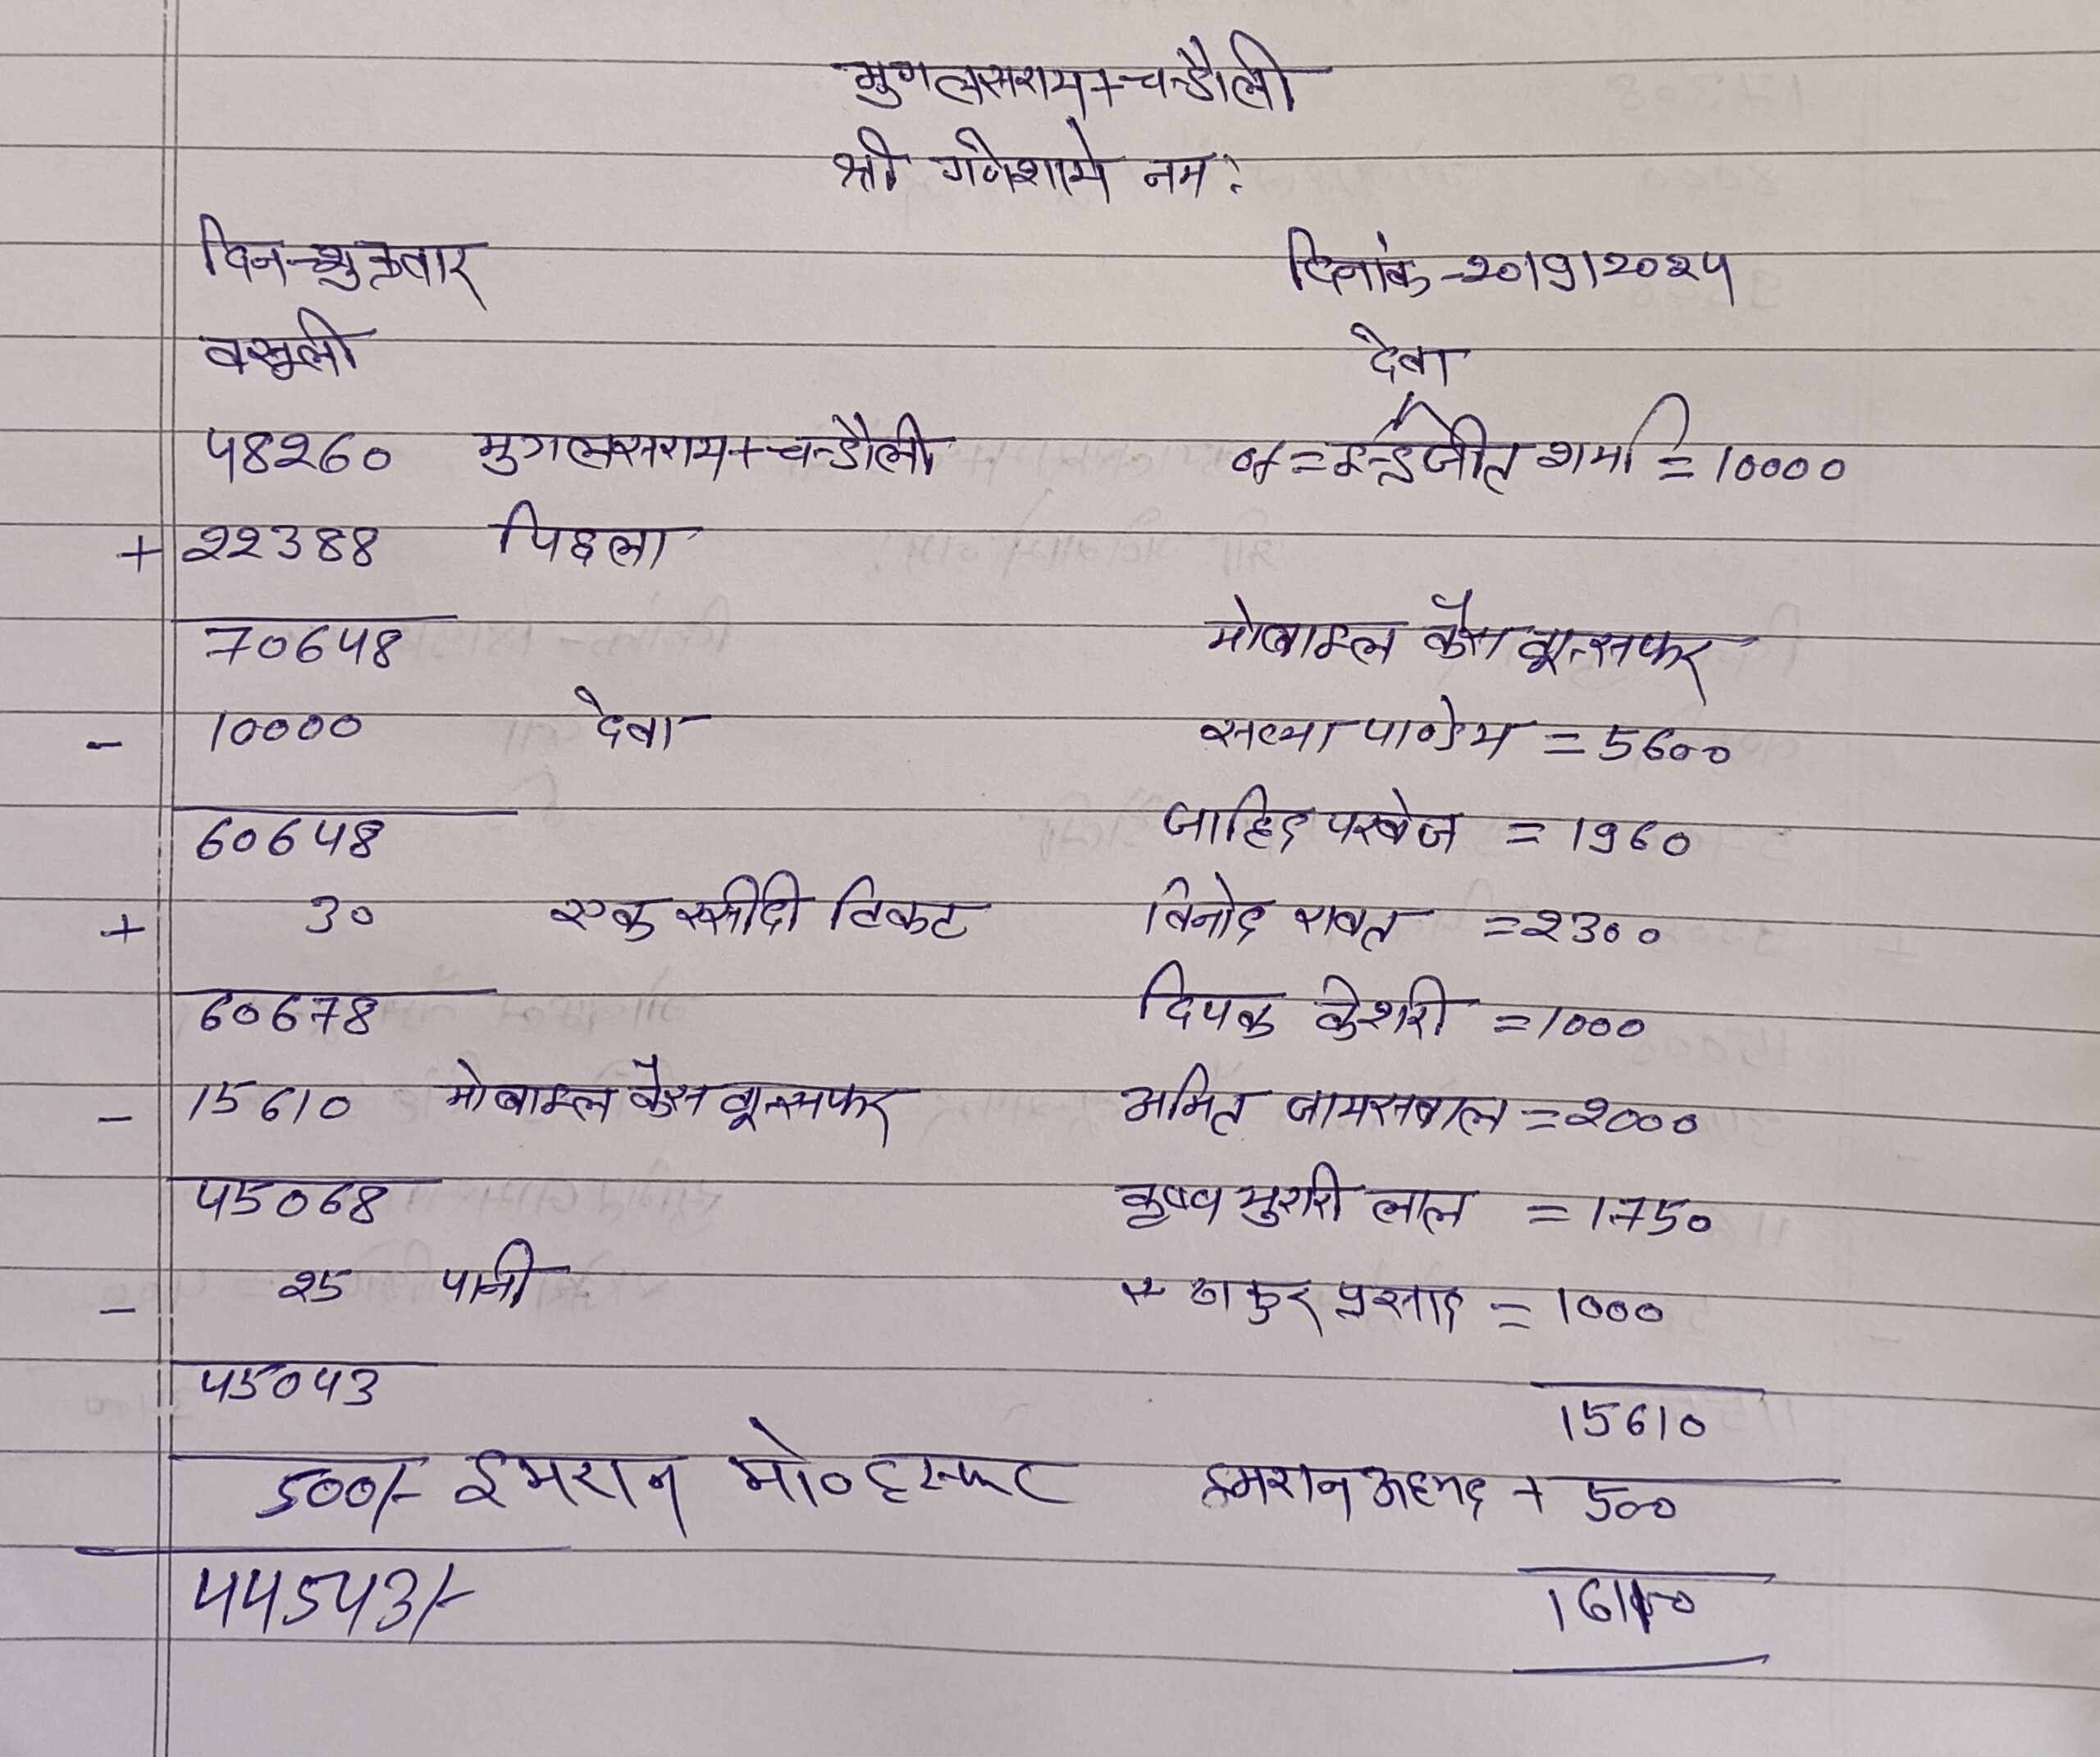 मुगलसराय+चन्दौली
श्री गणेशाये नम:
दिन-शुक्रवार दिनांक-20/9/2024
वसूली देवा
48260 मुगलसराय+चन्दौली = इन्द्रजीत शर्मा = 10000
+ 22388 पिछला
70648 मोबाइल कैस ट्रान्सफर
- 10000 देवा सत्या पाण्डेय = 5600
60648 जाहिद परवेज = 1960
+ 30 एक रसीदी टिकट विनोद रावत = 2300
60678 दिपक केशरी = 1000
- 15610 मोबाइल कैस ट्रान्सफर अमित जायसवाल = 2000
45068 कृष्ण मुरारी लाल = 1750
- 25 पानी ठाकुर प्रसाद = 1000
45043 15610
500/- इमरान मो० ट्रान्सफर इमरान अहमद + 500
44543/- 16110